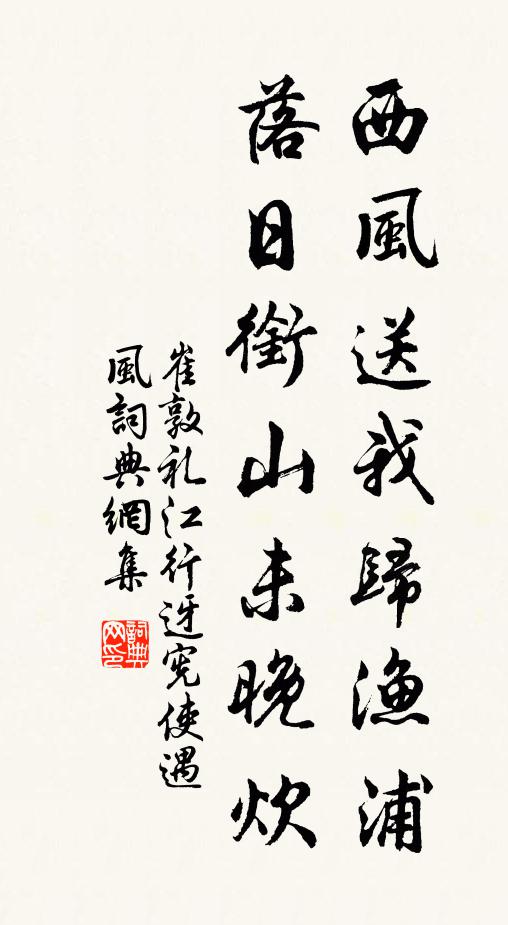 西風送我歸漁浦
落日銜山未晚炊
崔敦礼江行迓宪使遇
風詞典網集
詞典网印